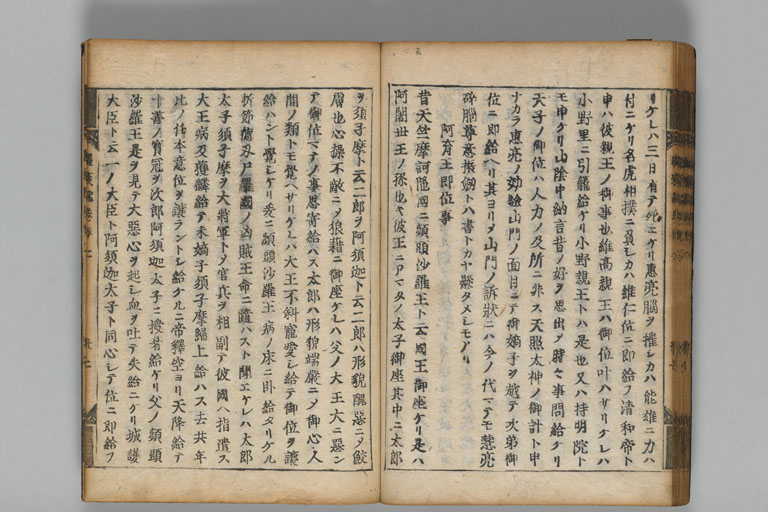 リケレハ三日有テ死ニケリ惠亮腦ヲ摧シカハ能雄ニ力ハ
付ニケリ名虎相撲ニ負シカハ維仁位ニ即給フ清和帝ト
申ハ彼親王ノ御事也維高親王ハ御位叶ハサリケレハ
小野里ニ引籠給ケリ小野親王トハ是也又ハ持明院ト
モ申ケリ山陰中納言昔ノ好ヲ思出メ時々事問給ケリ
天子ノ御位ハ人力ノ及所ニ非ス天照太神ノ御計ト申
ナカラ惠亮ノ効驗山門ノ面目ニテ御嫡子ヲ越テ次弟御
位ニ即給ヘリ其ヨリメ山門ノ訴狀ニハ今ノ代マテモ惠亮
碎腦尊意振劔トハ書トカヤ難タメシモノリ
阿育王即位事
昔天竺摩訶陁國ニ頻頭沙羅王ト云國王御座ケリ是ハ
阿闍世王ノ孫也彼王ニアマタノ太子御座其中ニ太郎
ヲ須子摩ト云二郎ヲ阿須迦ト云二郎ハ形貌醜惡ニメ鮫
膚也心操不敵ニメ狼藉ニ御座ケレハ父ノ大王大ニ惡ン
テ御位マテノ事思寄給ハス太郎ハ形貌端嚴ニメ御心人
間ノ類トモ覺ヘサリケレハ大王不斜寵愛シ給テ御位ヲ讓
給ハント覺シケリ爰ニ頻頭沙羅王病ノ床ニ臥給タリケル
折節德叉尸羅國ノ凶賊王命ニ隨ハスト聞エケレハ太郎
太子須子摩ヲ大將軍トメ官兵ヲ相副テ彼國ヘ指遣ス
大王病及獲麟給テ未嫡子須子摩歸上給ハス去共年
比ノ任本意位ヲ讓ラントシ給ケルニ帝釋空ヨリ天降給テ
十善ノ寶冠ヲ次郎阿須迦太子ニ授着給ケリ父ノ頻頭
沙羅王是ヲ見テ大惡心ヲ起シ血ヲ吐テ失給ニケリ城護
大臣ト云一ノ大臣ト阿須迦太子ト同心シテ位ニ即給フ